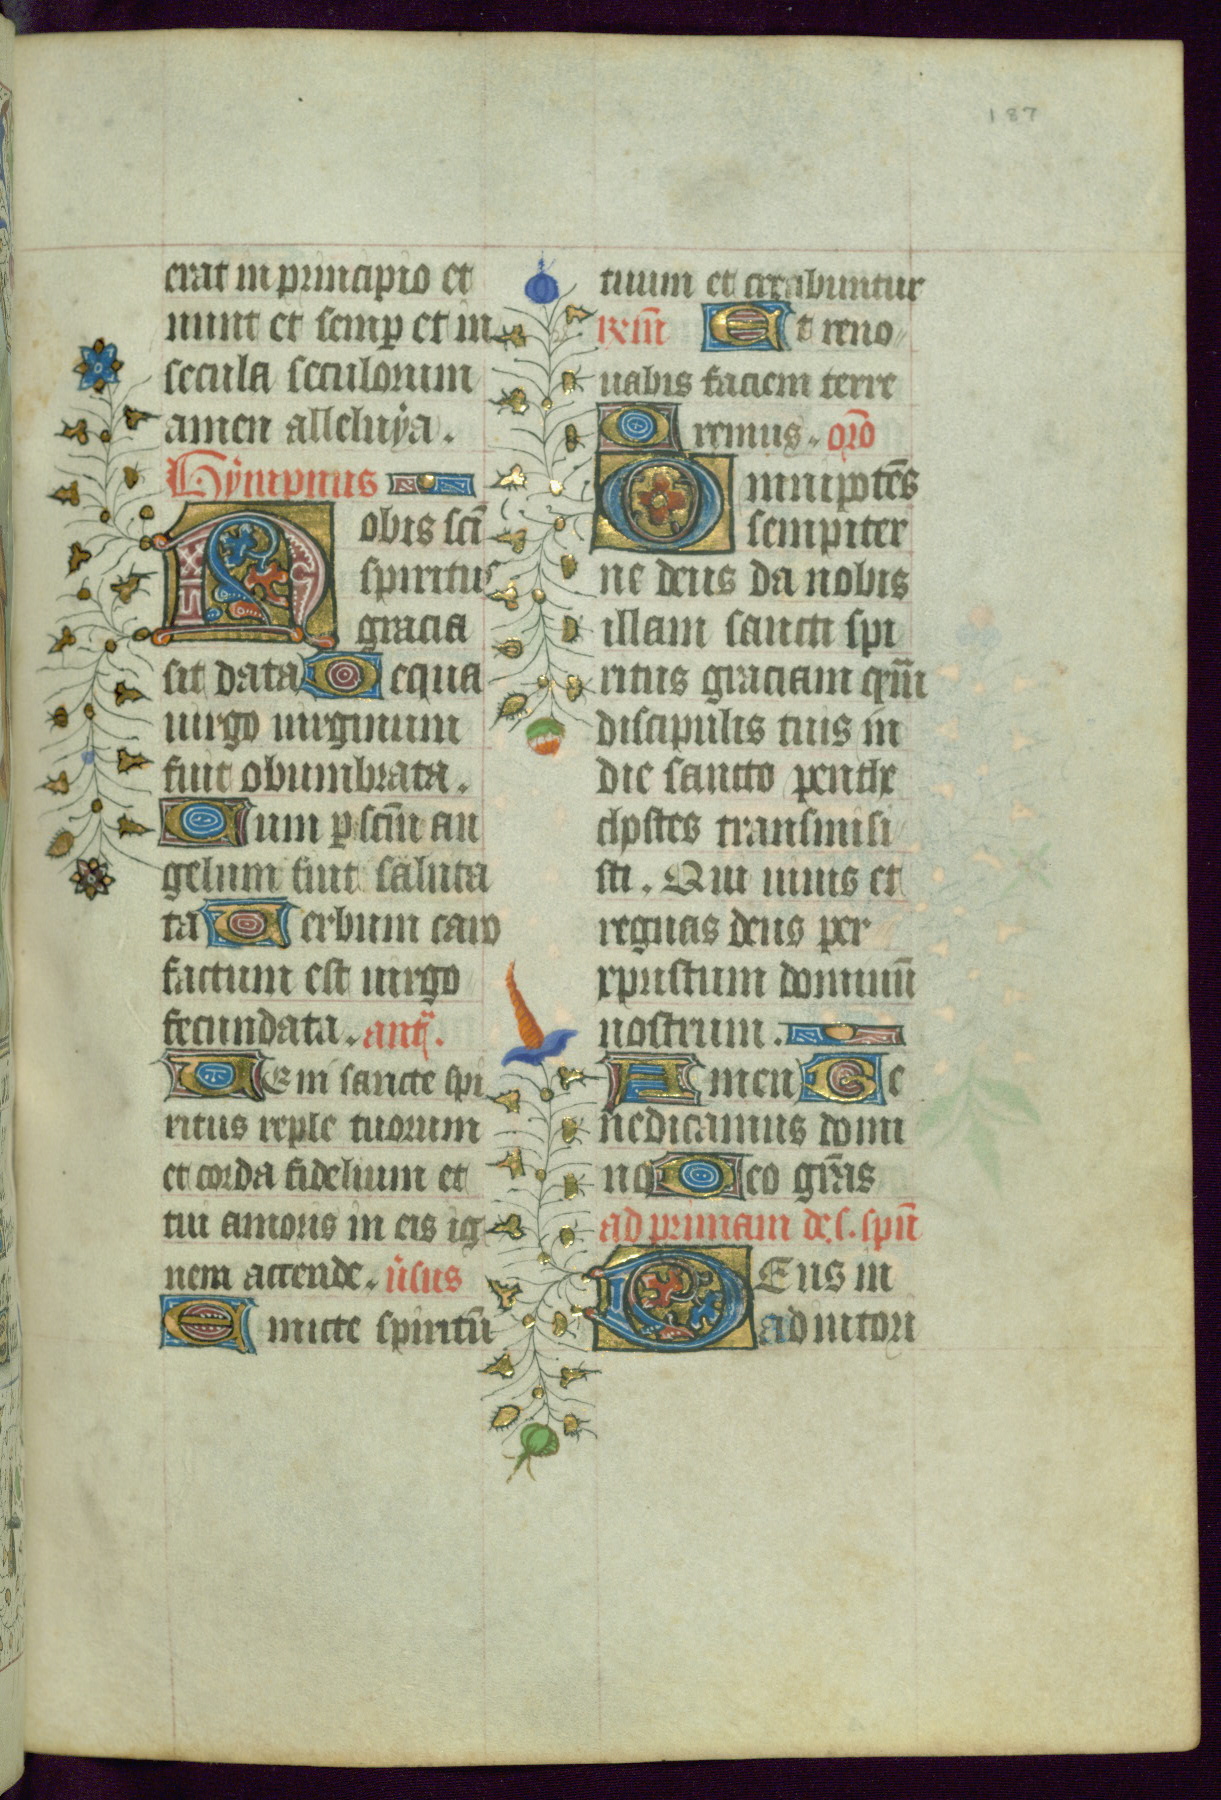 187
erat in principio et
nunc et semp et in
secula seculorum
amen alleluÿa.
Hÿmpnus
Nobis sc̄i
spiritus
gracia
sit data De qua
uirgo uirginum
fuit obumbrata.
Cum p sc̄m an
gelum fuit saluta
ta Verbum caro
factum est uirgo
fecundata. ant̄.
VEni sancte spi
ritus reple tuorum
et corda fidelium et
tui amoris in eis ig
nem accende. ūsus
Emitte spiritū
tuum et creabuntur
Et reno
uabis faciem terre
Oremus. or̄o
Omnipotēs
sempiter
ne deus da nobis
illam sancti spi
ritus graciam qm̄
discipulis tuis in
die sancto penthe
chostes transmisi
sti. Qui uiuis et
regnas deus per
xpristum dominū
nostrum.
Amen Be
nedicamus domi
no Deo gr̄as
ad primam de s. spū
DEus in
adiutori